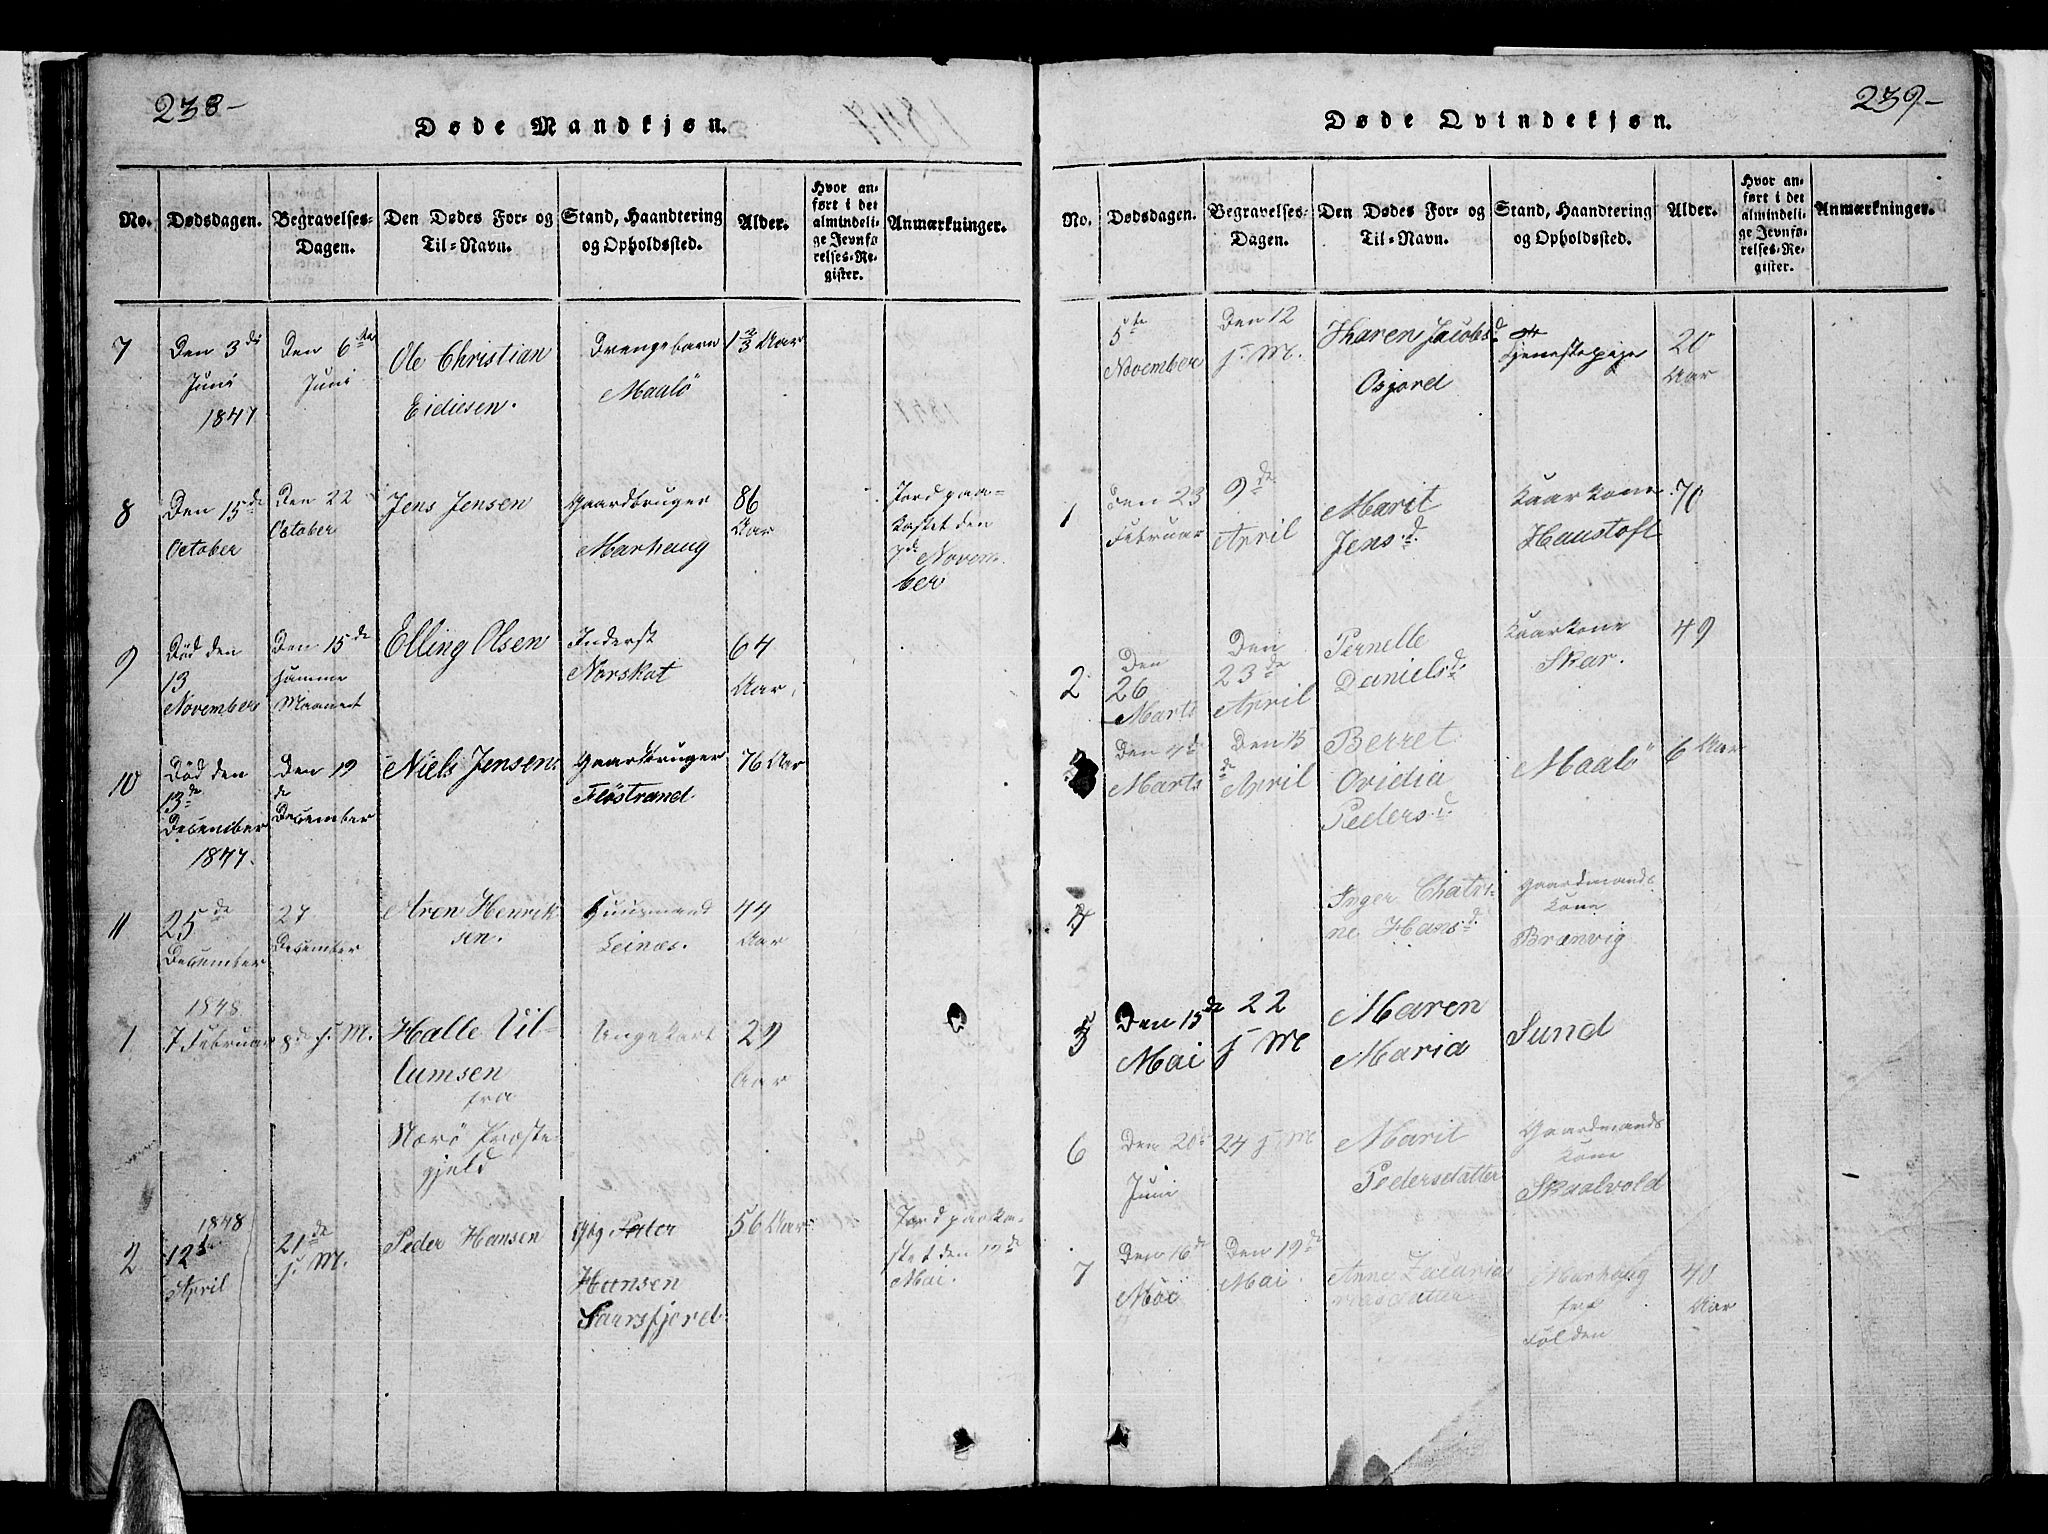 238-
Døde Mandkjøn.
No.
Dødsdagen.
Begravelses-
Dagen.
Den Dødes For- og
Til-Navn.
Stand, Haandtering
og Opholdssted.
Alder.
Hvor an-
ført i det
almindeli-
ge Jevnfø-
relses-Re-
gister.
Anmærkninger.
7
Den 3de
Juni
1847
Den 6te
Juni
Ole Christian
Eidiesen.
Drengebarn
Maalö
1 2/3 Aar
8
Den 15de
October
Den 22
October
Jens Jensen
Gaardbruger
Marhaug
86
Aar
Jordpaa-
kastet den
7de Novem-
ber
9
Död den
13
November
Den 15de
samme
Maaned
Elling Olsen
Inderst
Norskot
64
Aar.
10
Död den
13de
December
1847.
Den 19
de
December
Niels Jensen
Gaardbruger
Flöstrand
76 Aar
11
25de
December
27
December
Aren Henrik-
sen.
Huusmand
Leines.
44
Aar
1
1848
7 Februar
8de s. M.
Halle Vil-
lumsen
fra
Nærö Præste-
gjeld
Ungekarl
29
Aar
2
1848
12te
April
21de
s. M.
Peder Hansen
Hansen
Saursfjord
56 Aar
Jordpaaka-
stet den 12de
Mai.
239-
Døde Qvindekjøn.
No.
Dødsdagen.
Begravelses-
Dagen.
Den Dødes For- og
Til-Navn.
Stand, Haandtering
og Opholdssted.
Alder.
Hvor an-
ført i det
almindeli-
ge Jevnfø-
relses-Re-
gister.
Anmærkninger.
5te
November
Den 12
s. M.
Karen Jacobsd.
Osjord
tjenestepige
20
Aar
1
Den 23
Februar
9de
April
Marit
Jensd.
Kaarkone
Haustoft
70
2
Den
26
Marts
Den
23de
April
Pernelle
Danielsd.
Kaarkone
Skar.
49
3
Den 4de
Marts
Den 13
de April
Berret
Ovidia
Pedersd.
Maalö
6 Aar
4
Inger Chatri-
ne Hansd.
Gaardmands
Kone
Brænvig
5
Den 15de
Mai
22
s M
Maren
Maria
Sund
6
Den 20de
Juni
24 s M
Marit
Pedersdatter
Gaardmands
Kone
Skaalvold
7
Den 16de
Mai
Den 19de
Mai.
Anne Zacarias
riasdatter
Marhaug
fra
Folden
40
Aar